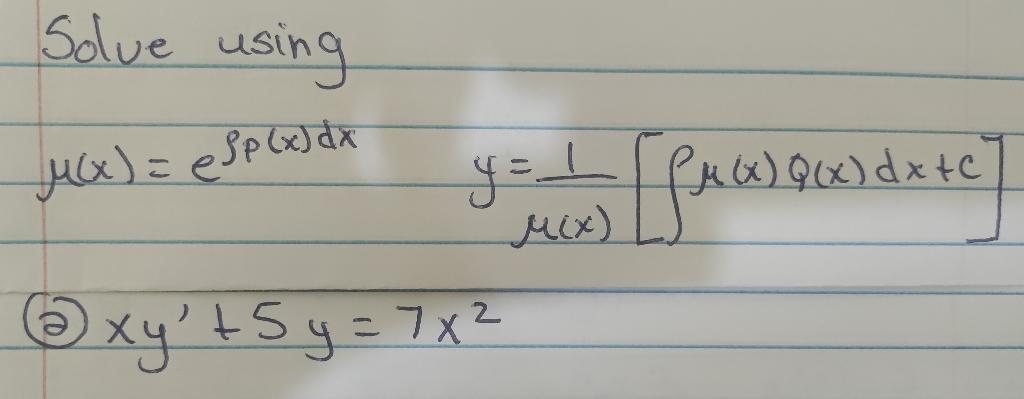 Solve using
μ(x) = e^∫p(x)dx   y = 1/μ(x) [∫μ(x)Q(x)dx+c]
ⓐ xy' + 5y = 7x²